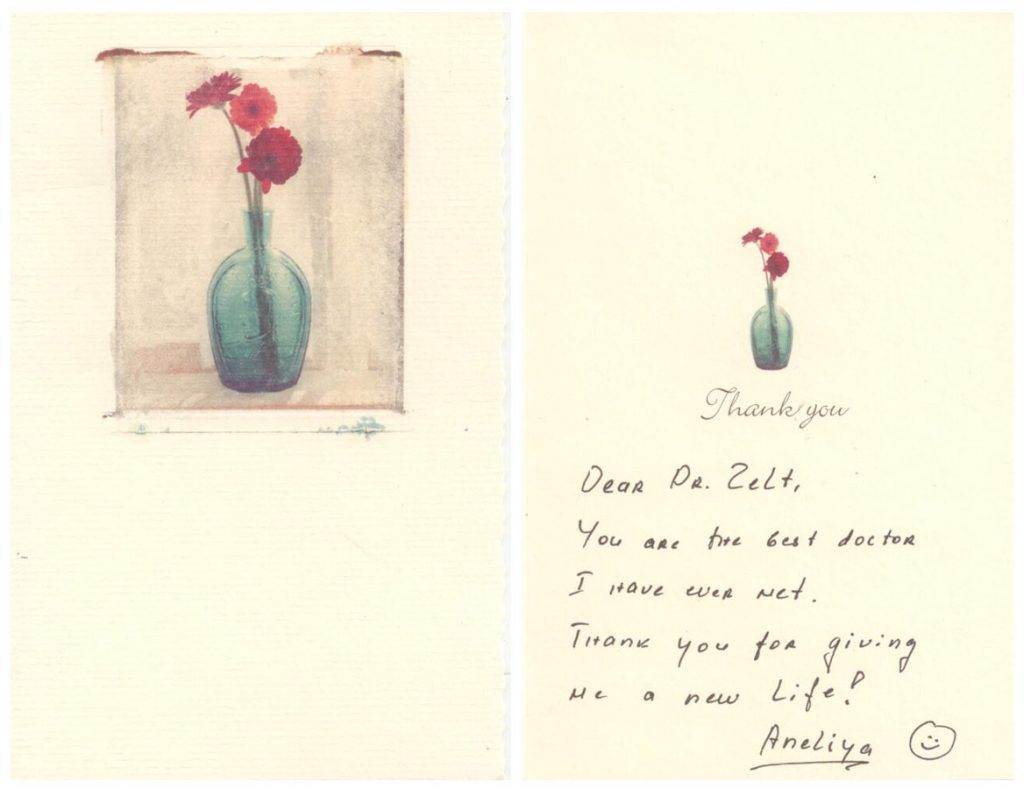 Thank you
Dear Dr. Zelt,
You are the best doctor
I have ever met.
Thank you for giving
me a new life!
Aneliya